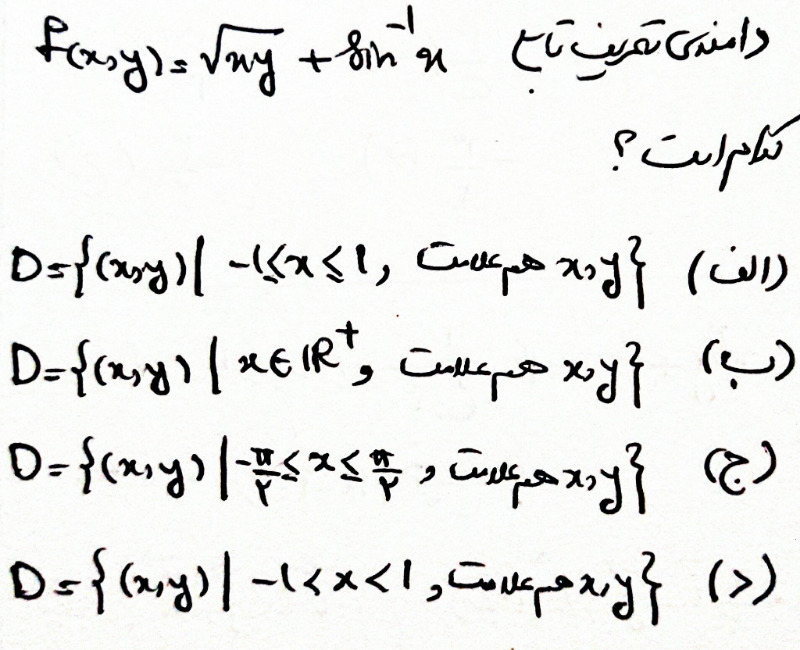 دامنه‌ی تعریف تابع f(x,y)=√xy + sin⁻¹x
کدام است؟
الف) D={(x,y) | -1≤x≤1 , x,y هم علامت}
ب) D={(x,y) | x∈IR⁺, x,y هم علامت}
ج) D={(x,y) | -π/۲≤x≤π/۲ , x,y هم علامت}
د) D={(x,y) | -1<x<1 , x,y هم علامت}